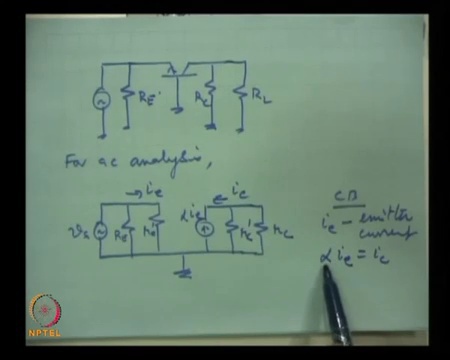 RE
RC
RL
For ac analysis,
ie
ic
CB
vs
RE
re'
αie
rc'
rL
ie – emitter
current
αie = ic
NPTEL